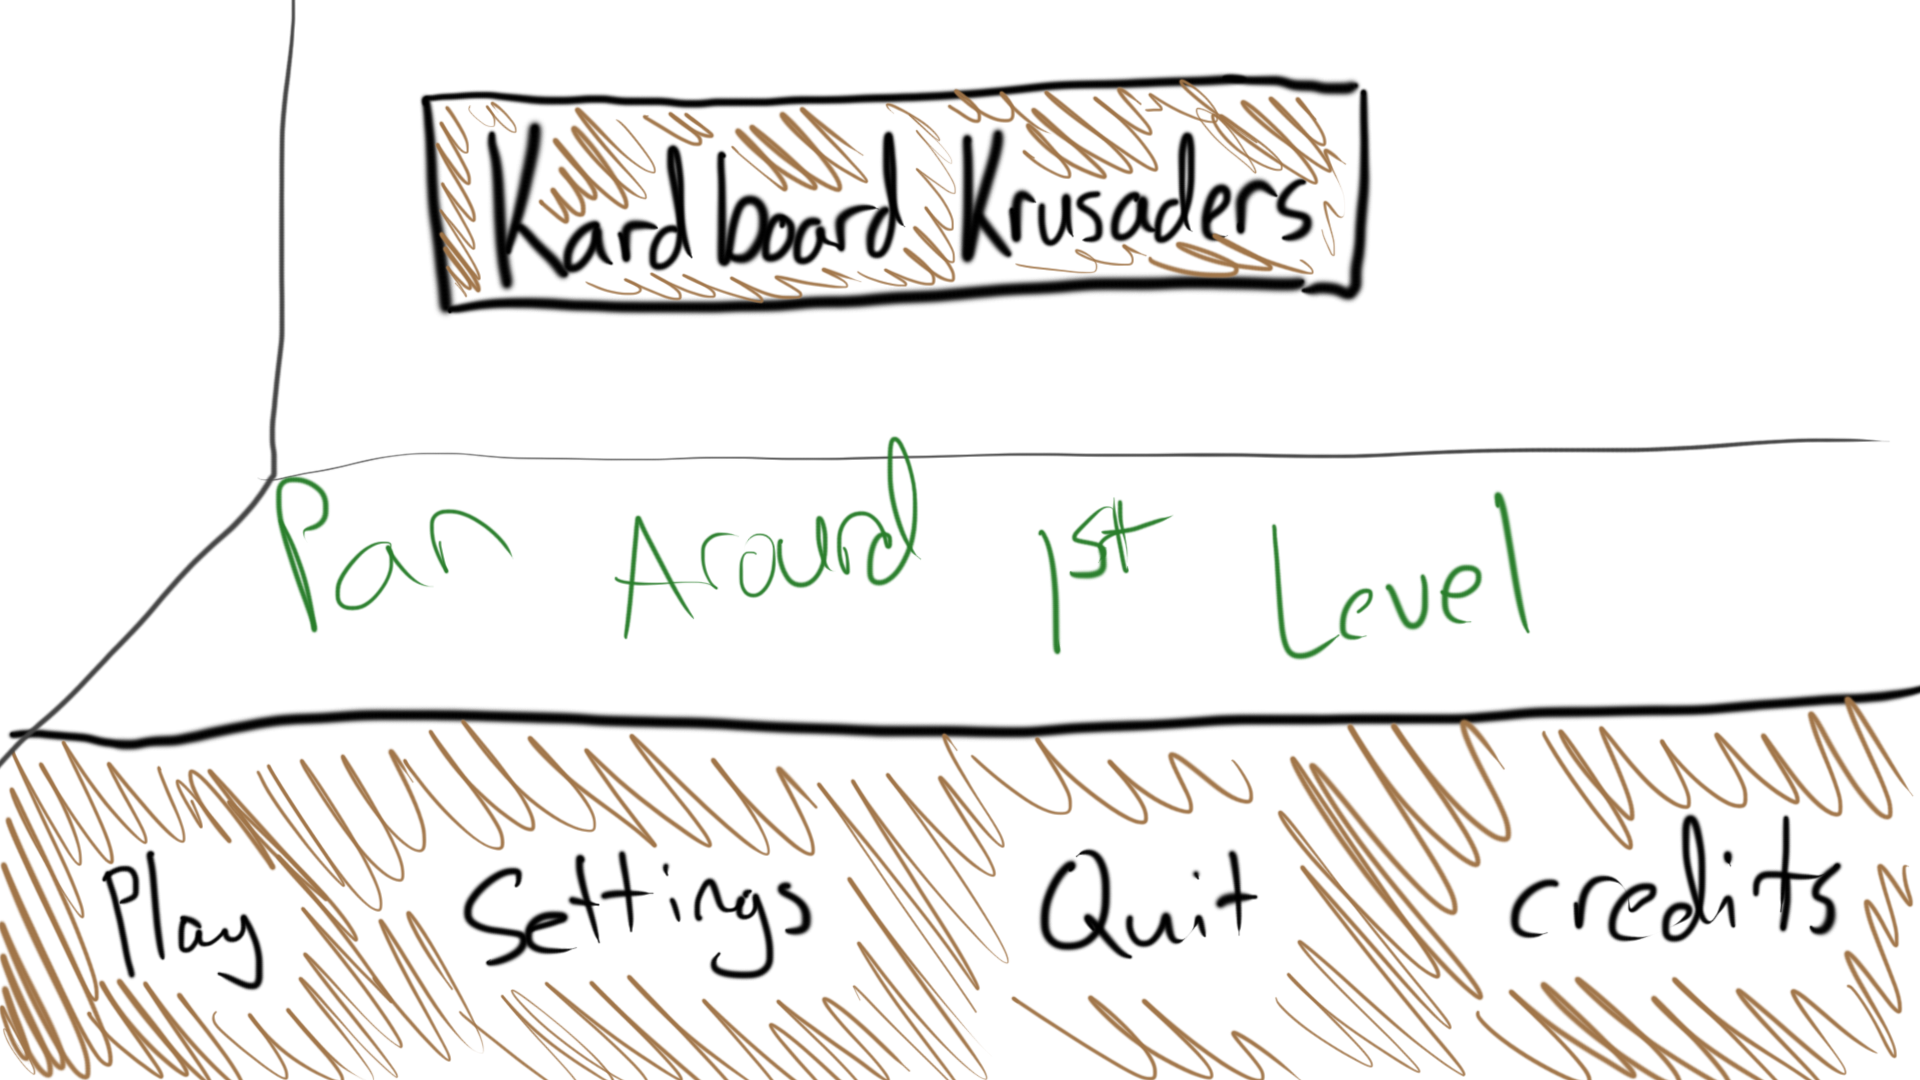 Kardboard Krusaders
Pan Around 1st Level
Play Settings Quit credits